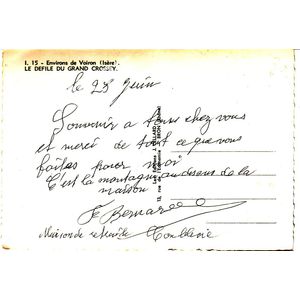 I. 15 - Environs de Voiron (Isère).
LE DEFILE DU GRAND CROSSEY.
le 28 Juin
Souvenir a tous chez vous
et merci de tout ce que vous
faites pour moi
C'est la montagne au dessus de la
maison
Bernard
Maison de retraite Coublevie